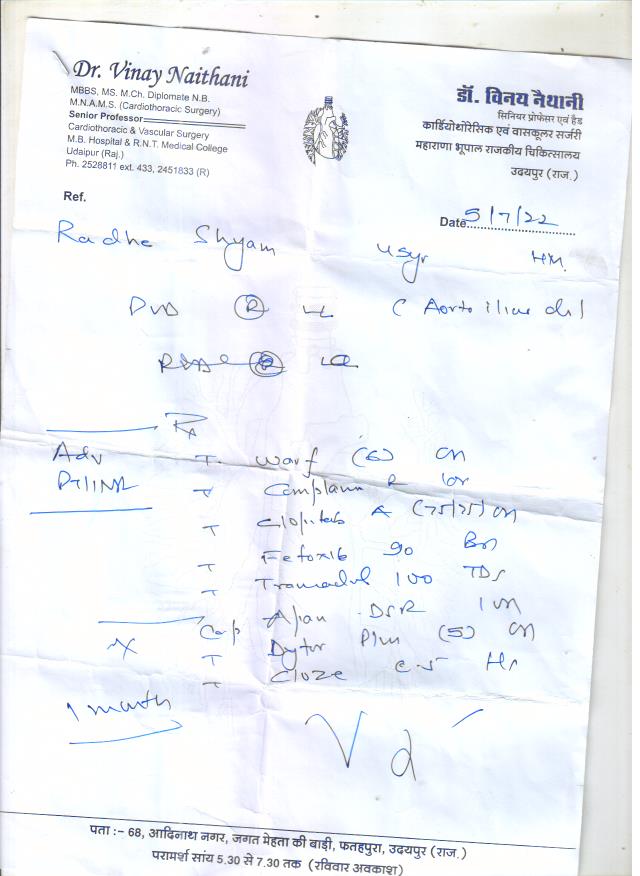 Dr. Vinay Naithani
MBBS, MS. M.Ch. Diplomate N.B.
M.N.A.M.S. (Cardiothoracic Surgery)
Senior Professor
Cardiothoracic & Vascular Surgery
M.B. Hospital & R.N.T. Medical College
Udaipur (Raj.)
Ph. 2528811 ext. 433, 2451833 (R)
डॉ. विनय नैथानी
सिनियर प्रोफेसर एवं हैड
कार्डियोथोरेसिक एवं वासकूलर सर्जरी
महाराणा भूपाल राजकीय चिकित्सालय
उदयपुर (राज.)
Ref.
Date 5/7/22
Radhe Shyam
PVD (R) LL C Aorto iliac
(R)
Rx
Adv T. Warf (5) on
PT/INR T Complamin R
T Clopitab A (75/75) on
T Fetoxib 90
T Tramadol 100 TDS
Cap Ajan DSR
T Dytor Plus (5) on
T Cloze
1 month
पता :- 68, आदिनाथ नगर, जगत मेहता की बाड़ी, फतहपुरा, उदयपुर (राज.)
परामर्श सांय 5.30 से 7.30 तक (रविवार अवकाश)